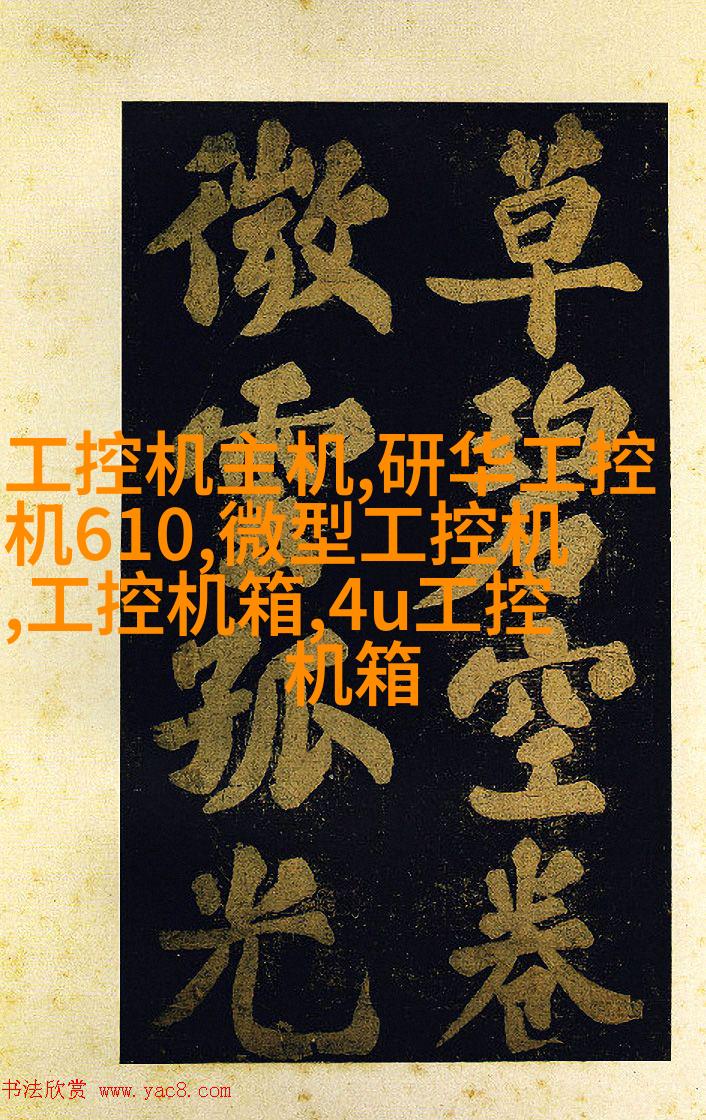 草碧空卷
微雲孤光
工控机主机,研华工控
机610,微型工控机
,工控机箱,4u工控
机箱
书法欣赏 www.yac8.com